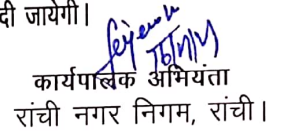 दी जायेगी।
कार्यपालक अभियंता
रांची नगर निगम, रांची।